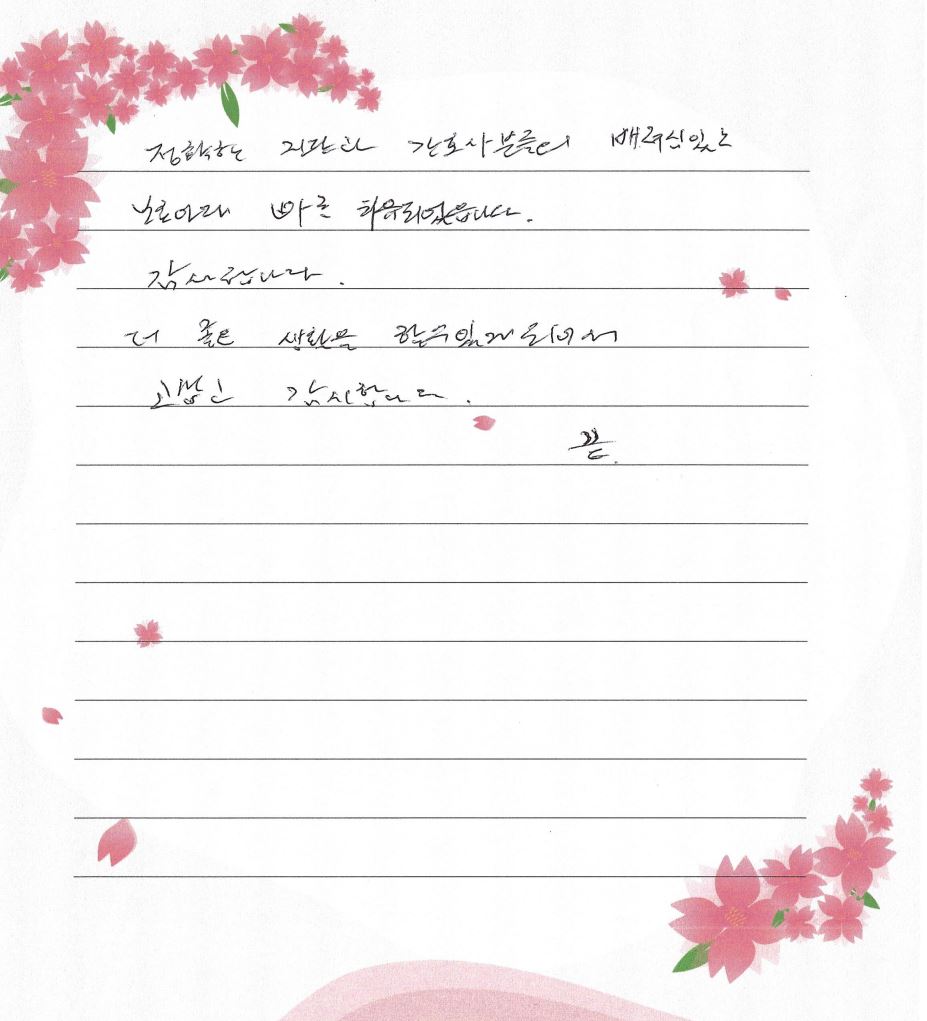 정확한 진단과 간호사분들의 배려심있는
보호아래 빠른 치유되었습니다.
감사합니다.
더 좋은 생활을 할수있게되어서
고맙고 감사합니다.
끝.